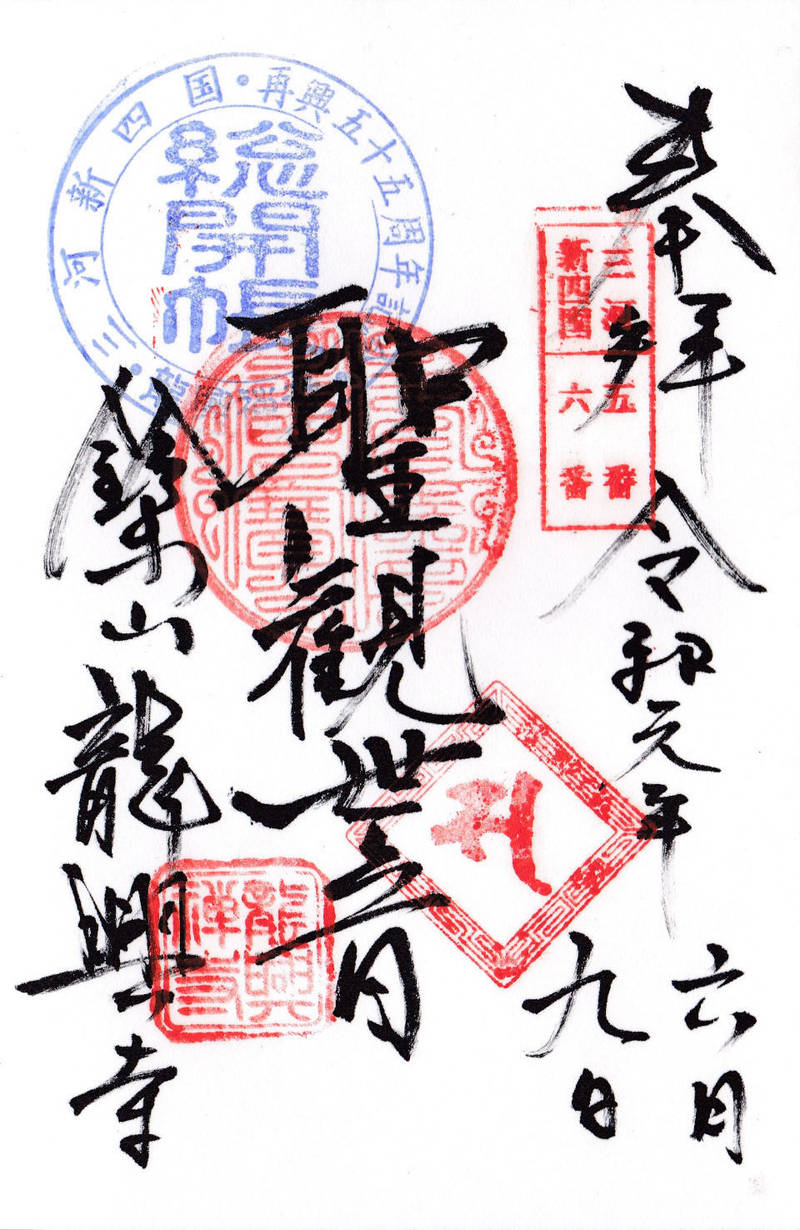 奉拜
令和元年
六月
九日
三河
新四国
五番
六番
聖觀世音
山龍興寺
三河新四国・再興五十五周年記
總開帳
龍興
禅寺